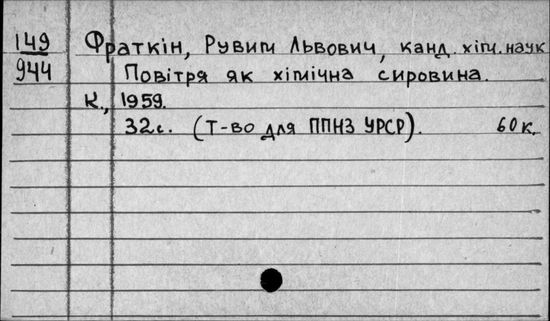 149 Фраткін, Рувим Львович, канд. хім. наук
944 Повітря як хімічна сировина.
К., 1959.
32с. (Т-во для ППНЗ УРСР). 60к.